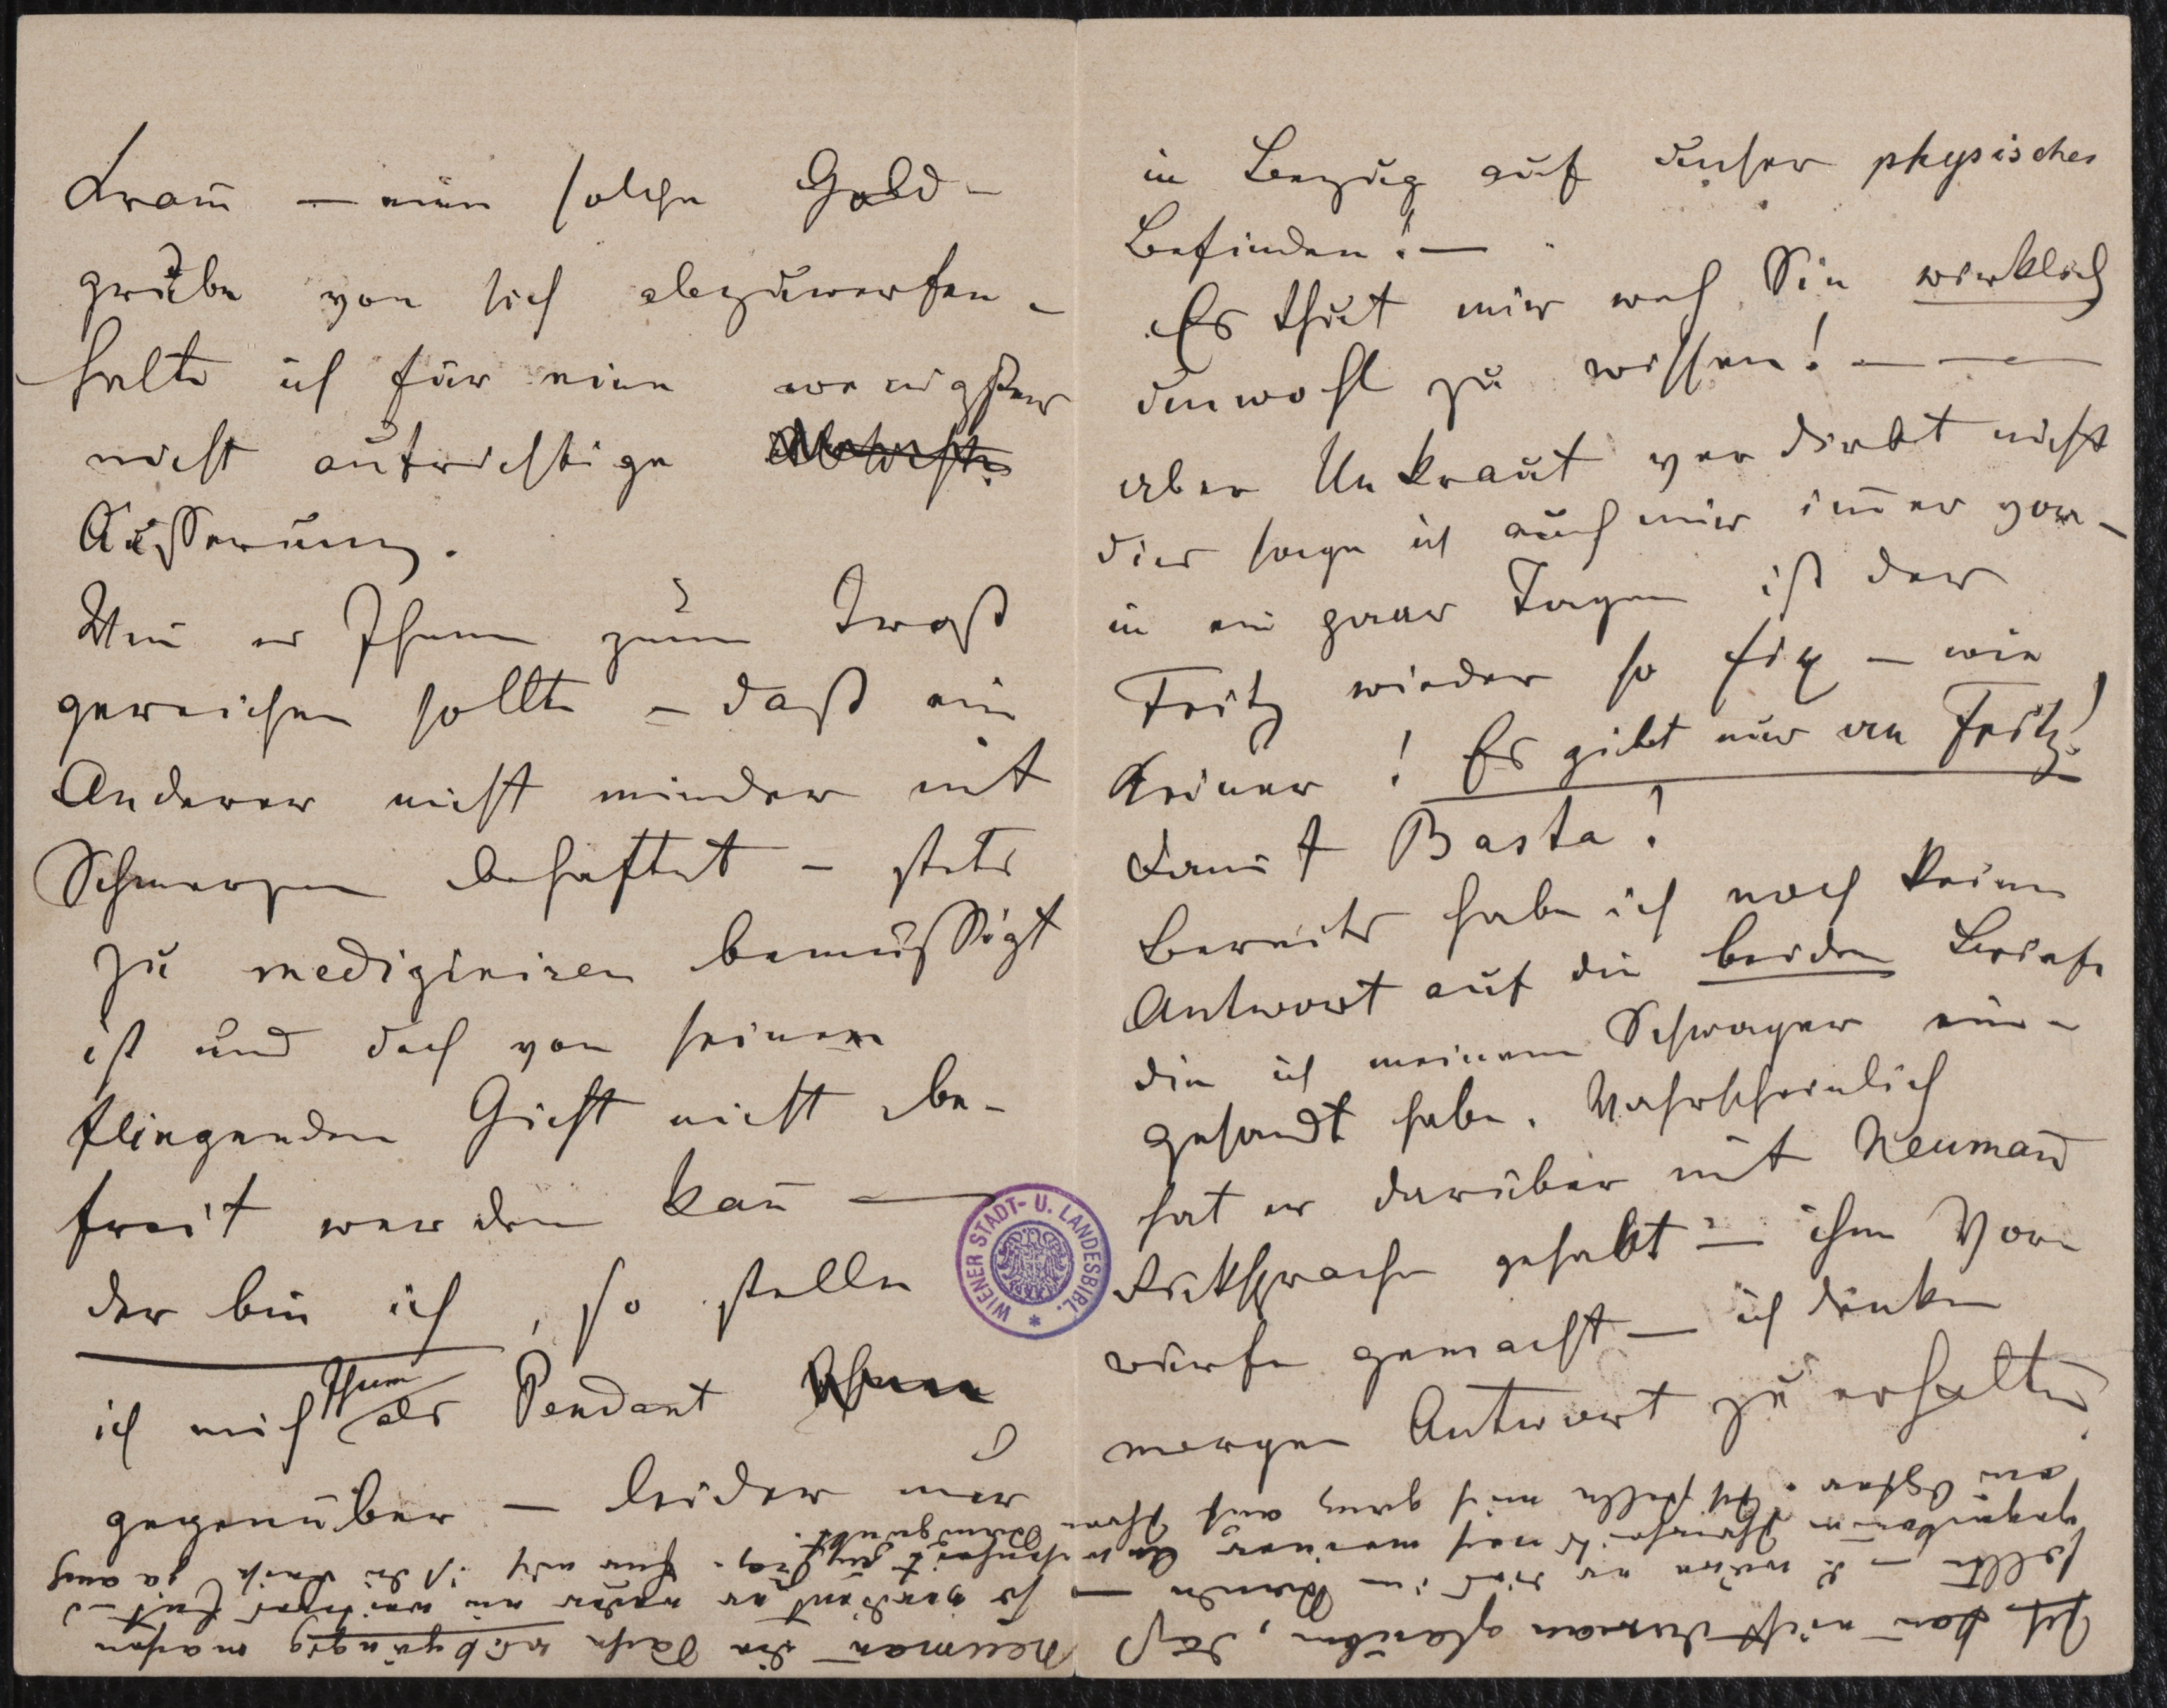 Kram̄ — eine solche Gold-
grube von sich abzuwerfen –
halte ich für eine wenigstens
nicht aufrichtige
Äusserung.
Weñ es Ihnen zum Trost
gereichen sollte – daß ein
Anderer nicht minder mit
Schmerzen behaftet – stets
zu mediziniren bemüssigt
ist und doch von seinem
fliegenden Gicht nicht be-
freit werden kañ —
der bin ich, so stelle
ich mich Ihnen als Pendant
gegenüber – leider nur
in Bezug auf unser physisches
Befinden! —
Es thut mir weh Sie wirklich
unwohl zu wissen! — — —
aber Unkraut verdirbt nicht
dies sage ich auch mir im̄er vor –
in ein paar Tagen ist der
Fritz wieder so fix – wie
Keiner! Es gibt nur an Fritz!
damit Basta!
Bereits habe ich noch keine
Antwort auf die beiden Briefe
die ich meinem Schwager ein-
gesandt habe. Wahrscheinlich
hat er darüber mit Neumañ
Rücksprache gehabt – ihm Vor-
würfe gemacht – ich denke
morgen Antwort zu erhalten
Ich kañ nicht daran glauben, daß
Neumañ die Sache rückgängig machen
sollte –
WIENER STADT- U. LANDESBIBL.